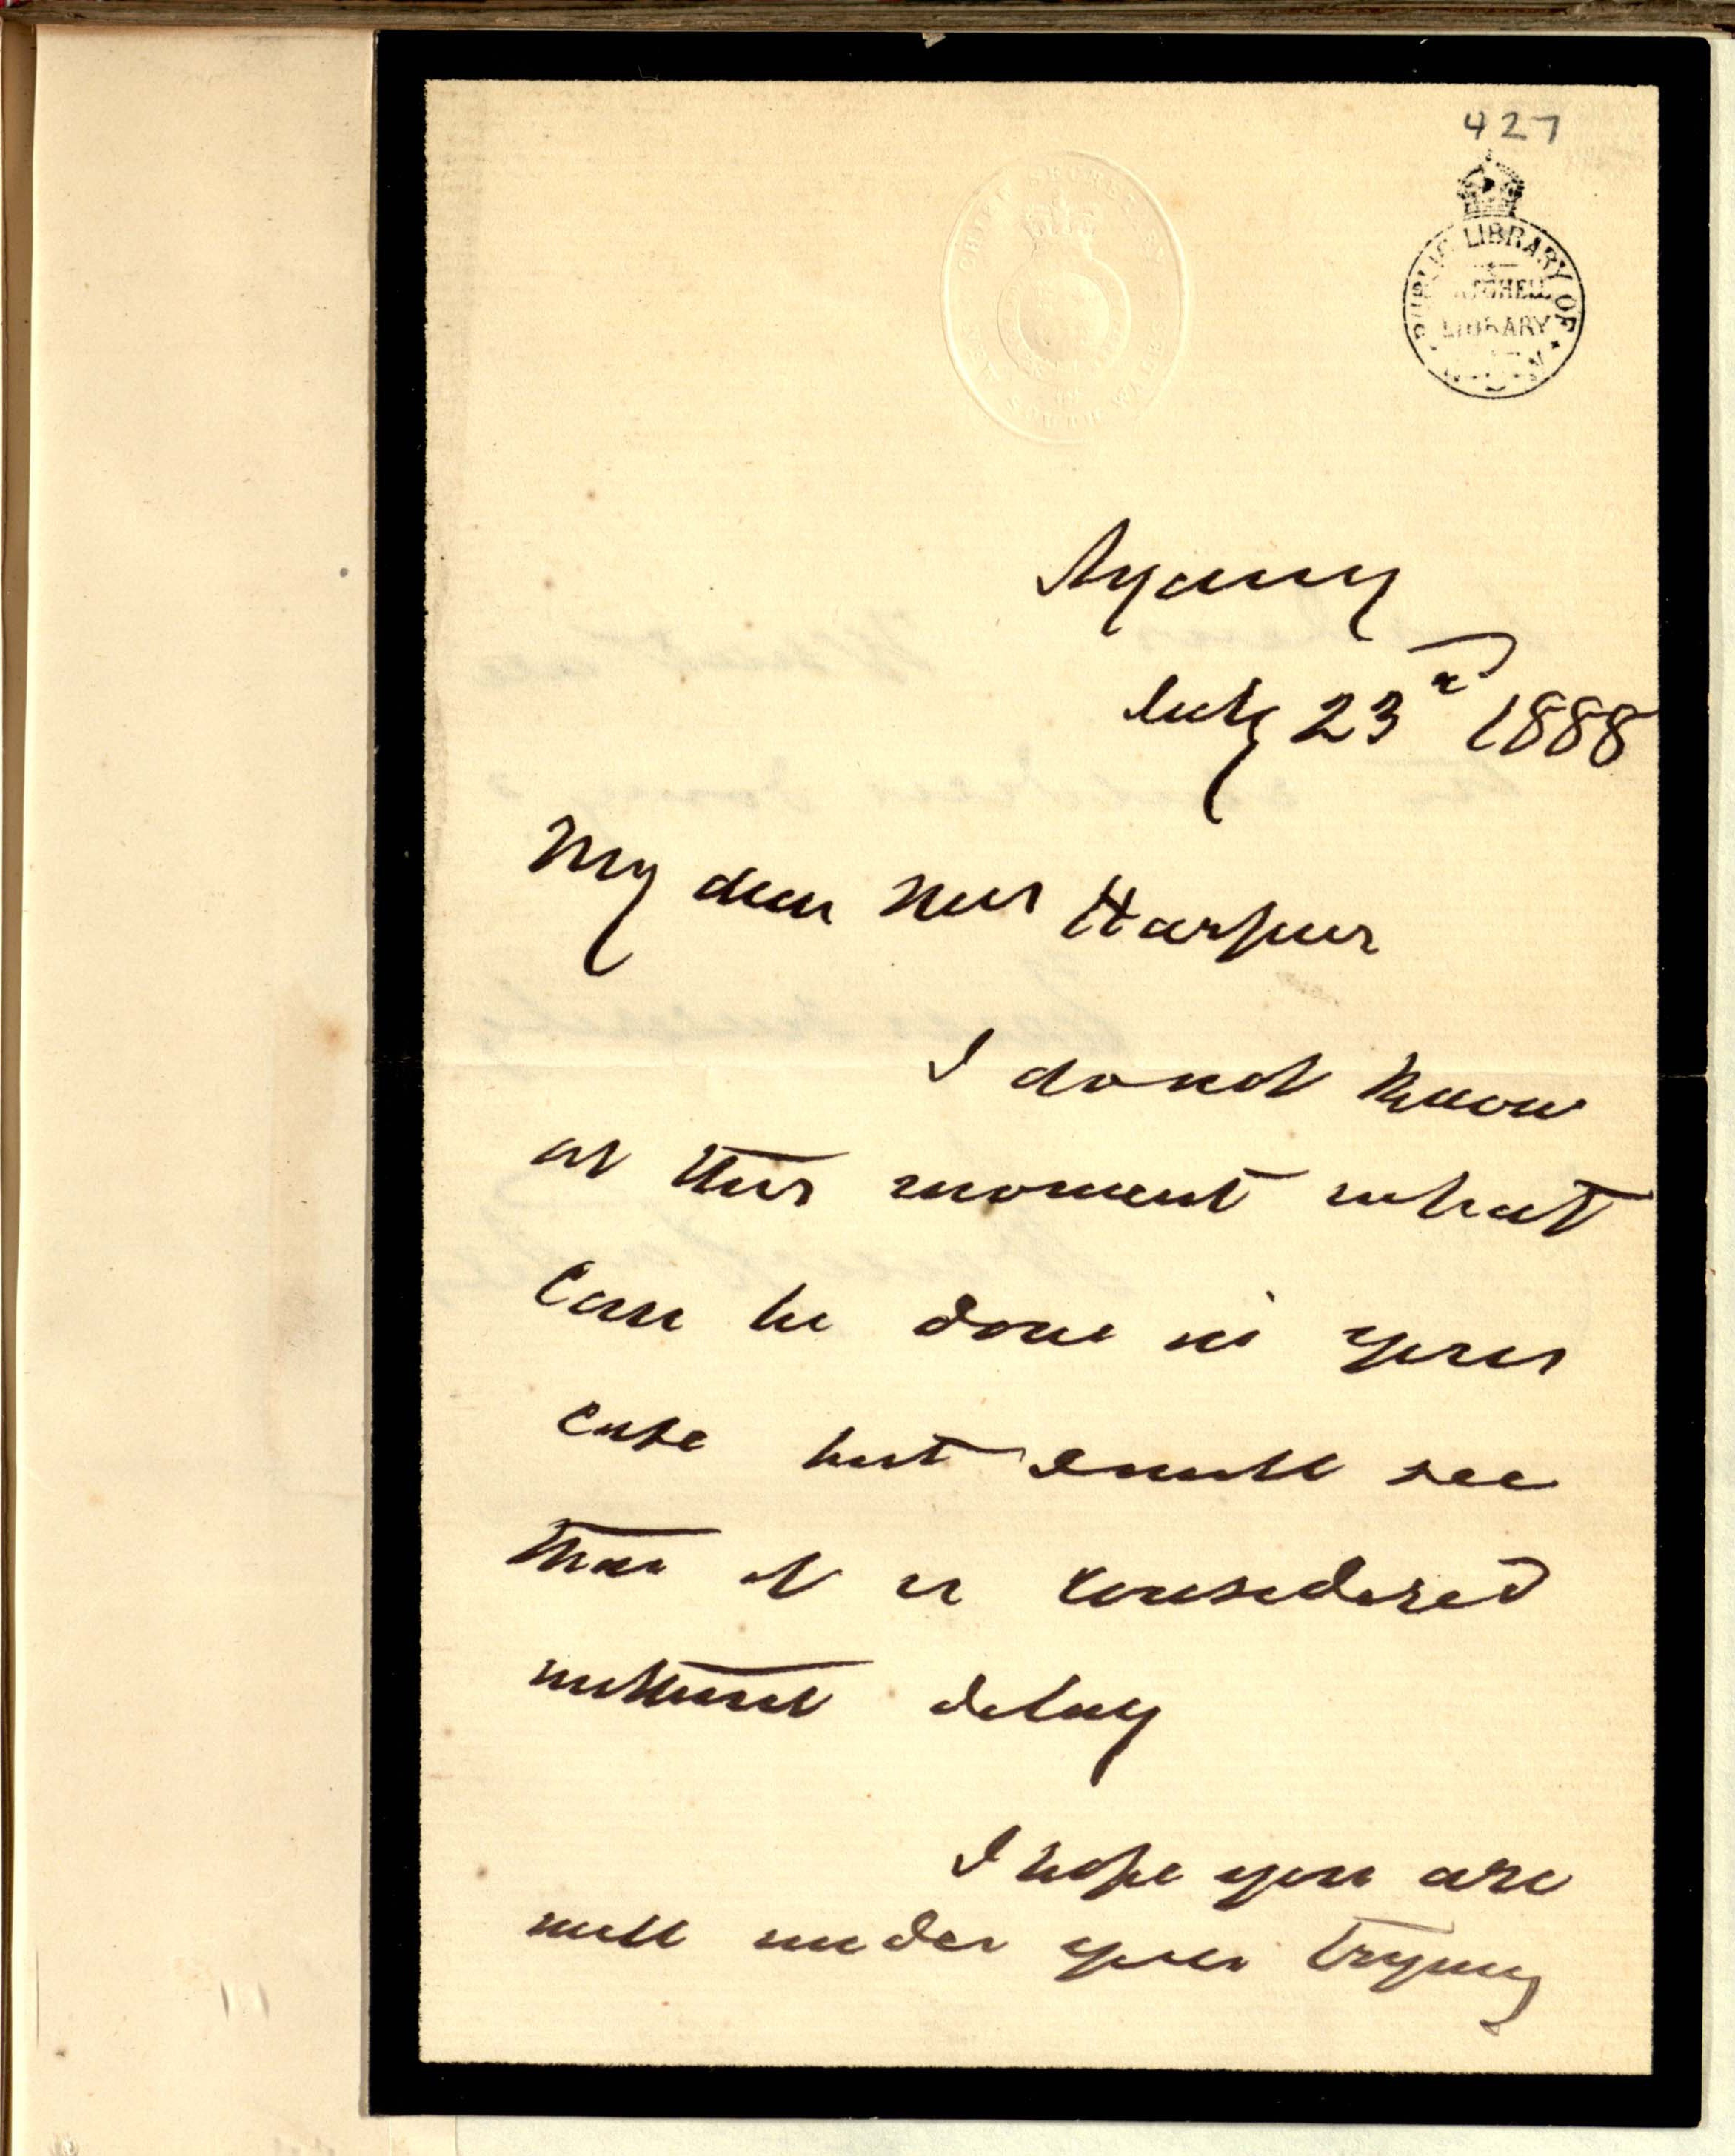 427
PUBLIC LIBRARY OF
N.S.W
MITCHELL
LIBRARY
CHIEF SECRETARY
NEW SOUTH WALES
Sydney
July 23d 1888
My dear Mrs Harpur
I do not know
at this moment what
can be done in your
case but I will see
that it is considered
without delay
I hope you are
well under your trying